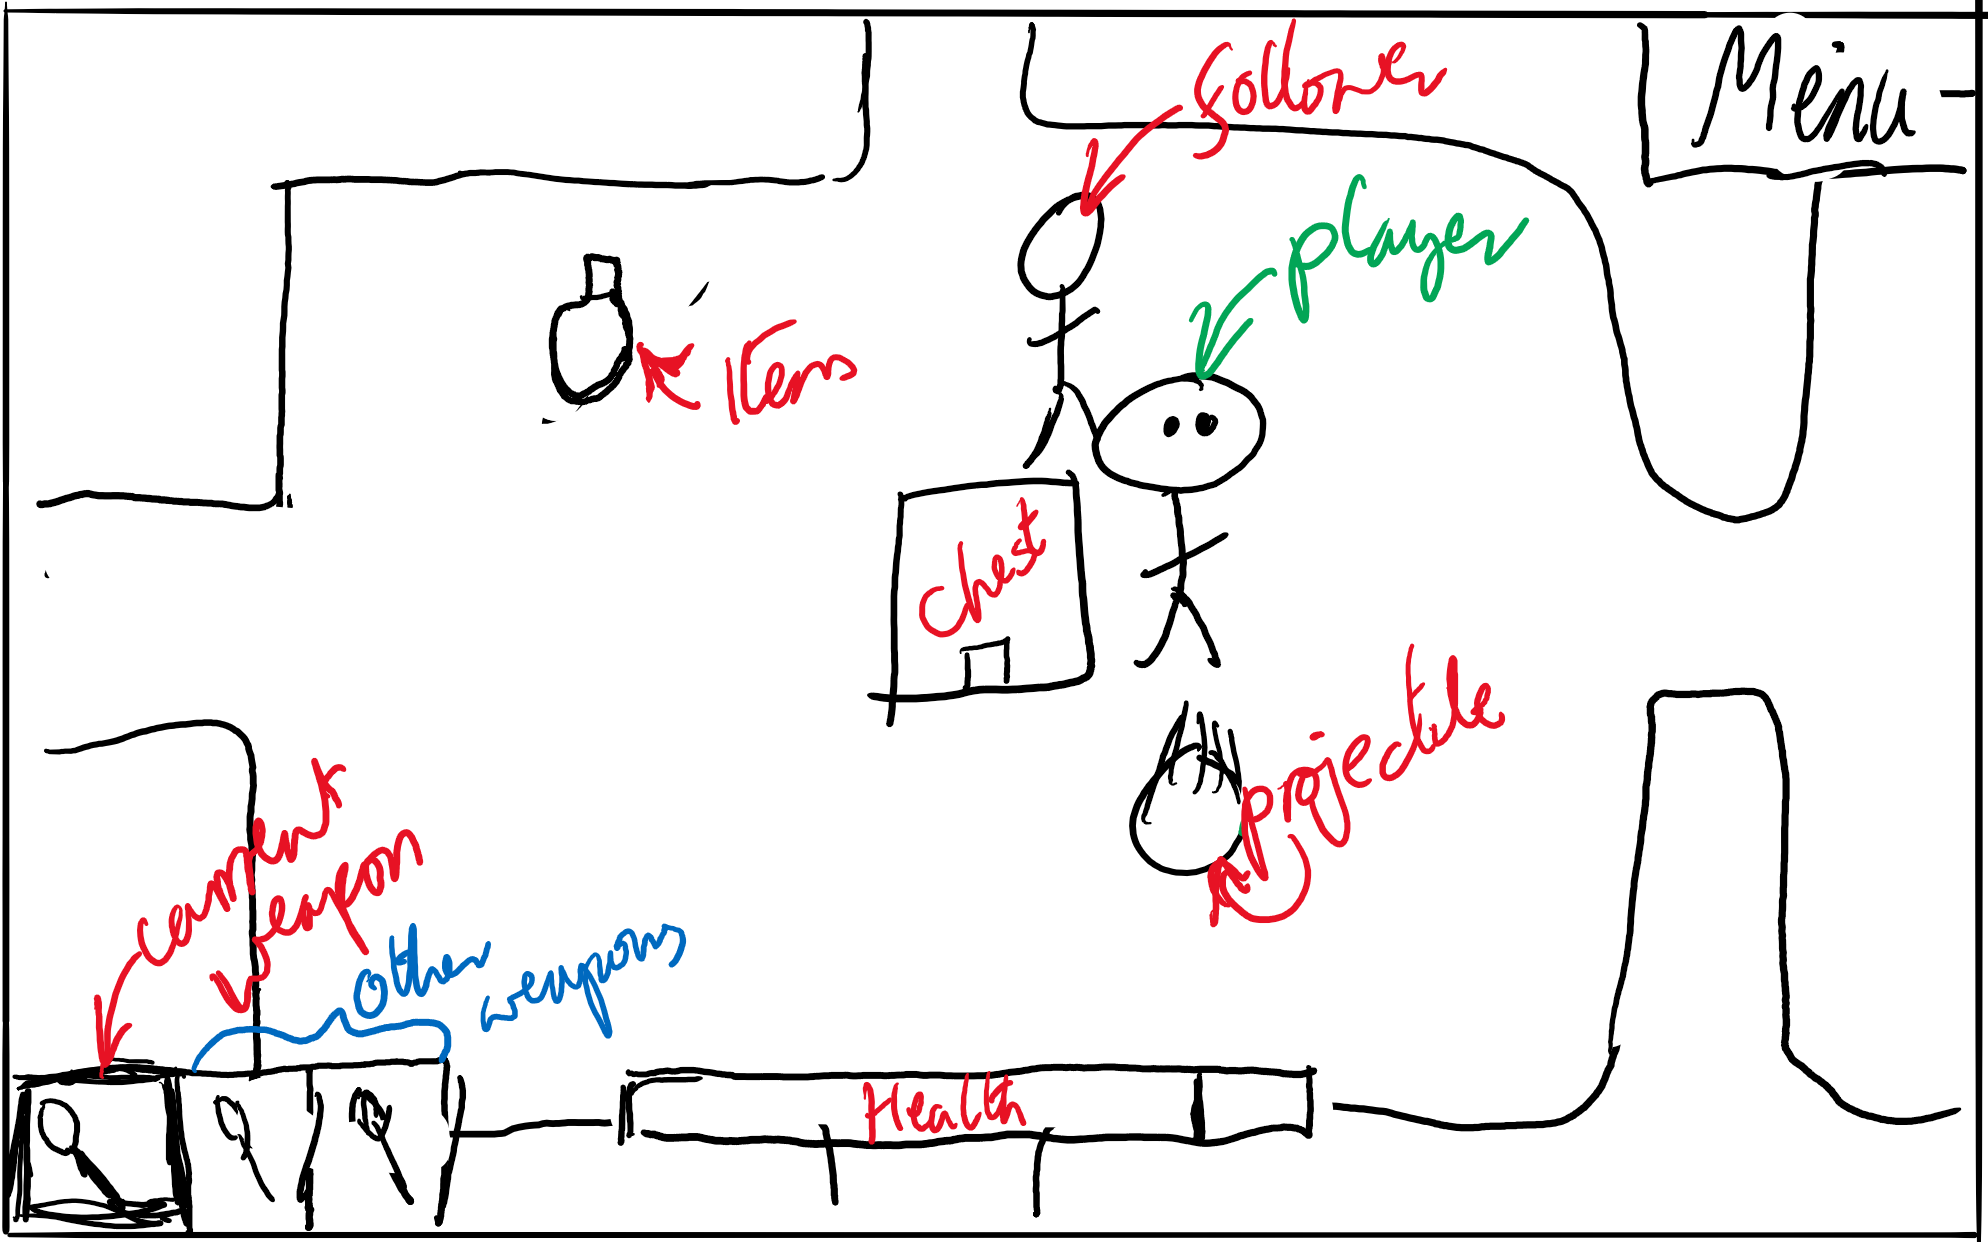 Follower
Menu
player
Items
Chest
projectile
current
weapon
other
weapons
Health